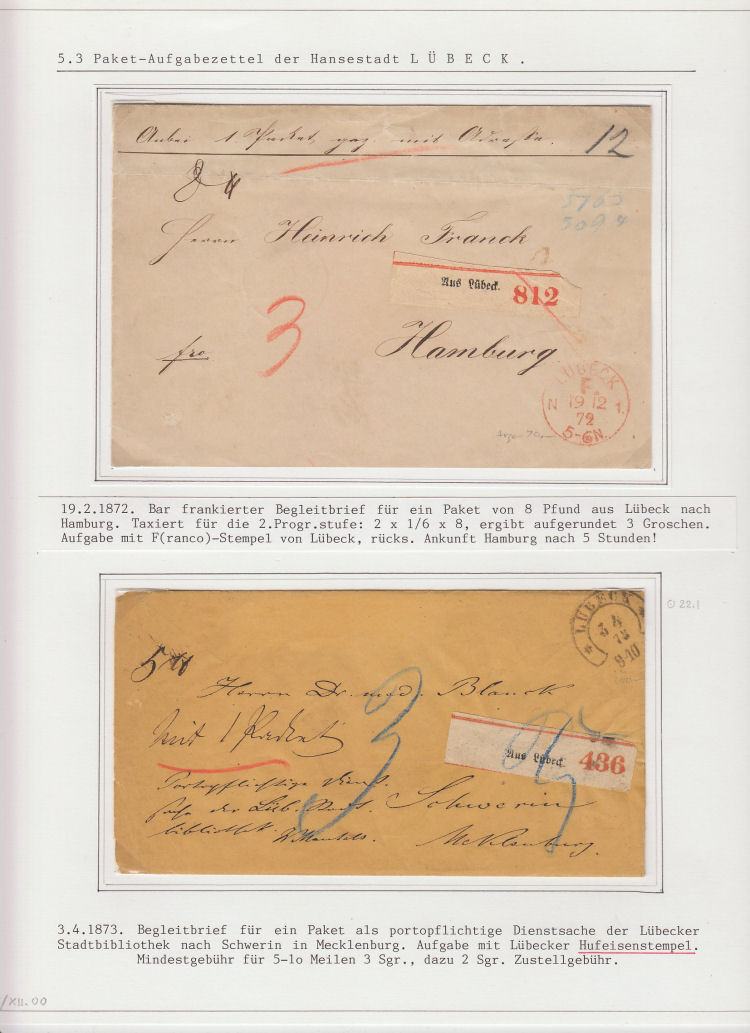 5.3 Paket-Aufgabezettel der Hansestadt L Ü B E C K .
Anbei 1 Packet, gez. mit Adresse.
12
8 ℔
5765
Herrn Heinrich Franck
Aus Lübeck. 812
3
fro.
Hamburg
LÜBECK
F.
N 19 12 1.
72
5-6N.
19.2.1872. Bar frankierter Begleitbrief für ein Paket von 8 Pfund aus Lübeck nach
Hamburg. Taxiert für die 2.Progr.stufe: 2 x 1/6 x 8, ergibt aufgerundet 3 Groschen.
Aufgabe mit F(ranco)-Stempel von Lübeck, rücks. Ankunft Hamburg nach 5 Stunden!
LÜBECK
3 4
73
9-10
22.1
5 ℔
Herrn Dr. med. Blanck
Mit 1 Packet
3
Aus Lübeck. 436
Portopflichtige Dienst-
sache der Lüb. Stadt-
bibliothek.
Schwerin
Mecklenburg.
3.4.1873. Begleitbrief für ein Paket als portopflichtige Dienstsache der Lübecker
Stadtbibliothek nach Schwerin in Mecklenburg. Aufgabe mit Lübecker Hufeisenstempel.
Mindestgebühr für 5-1o Meilen 3 Sgr., dazu 2 Sgr. Zustellgebühr.
/XII.00